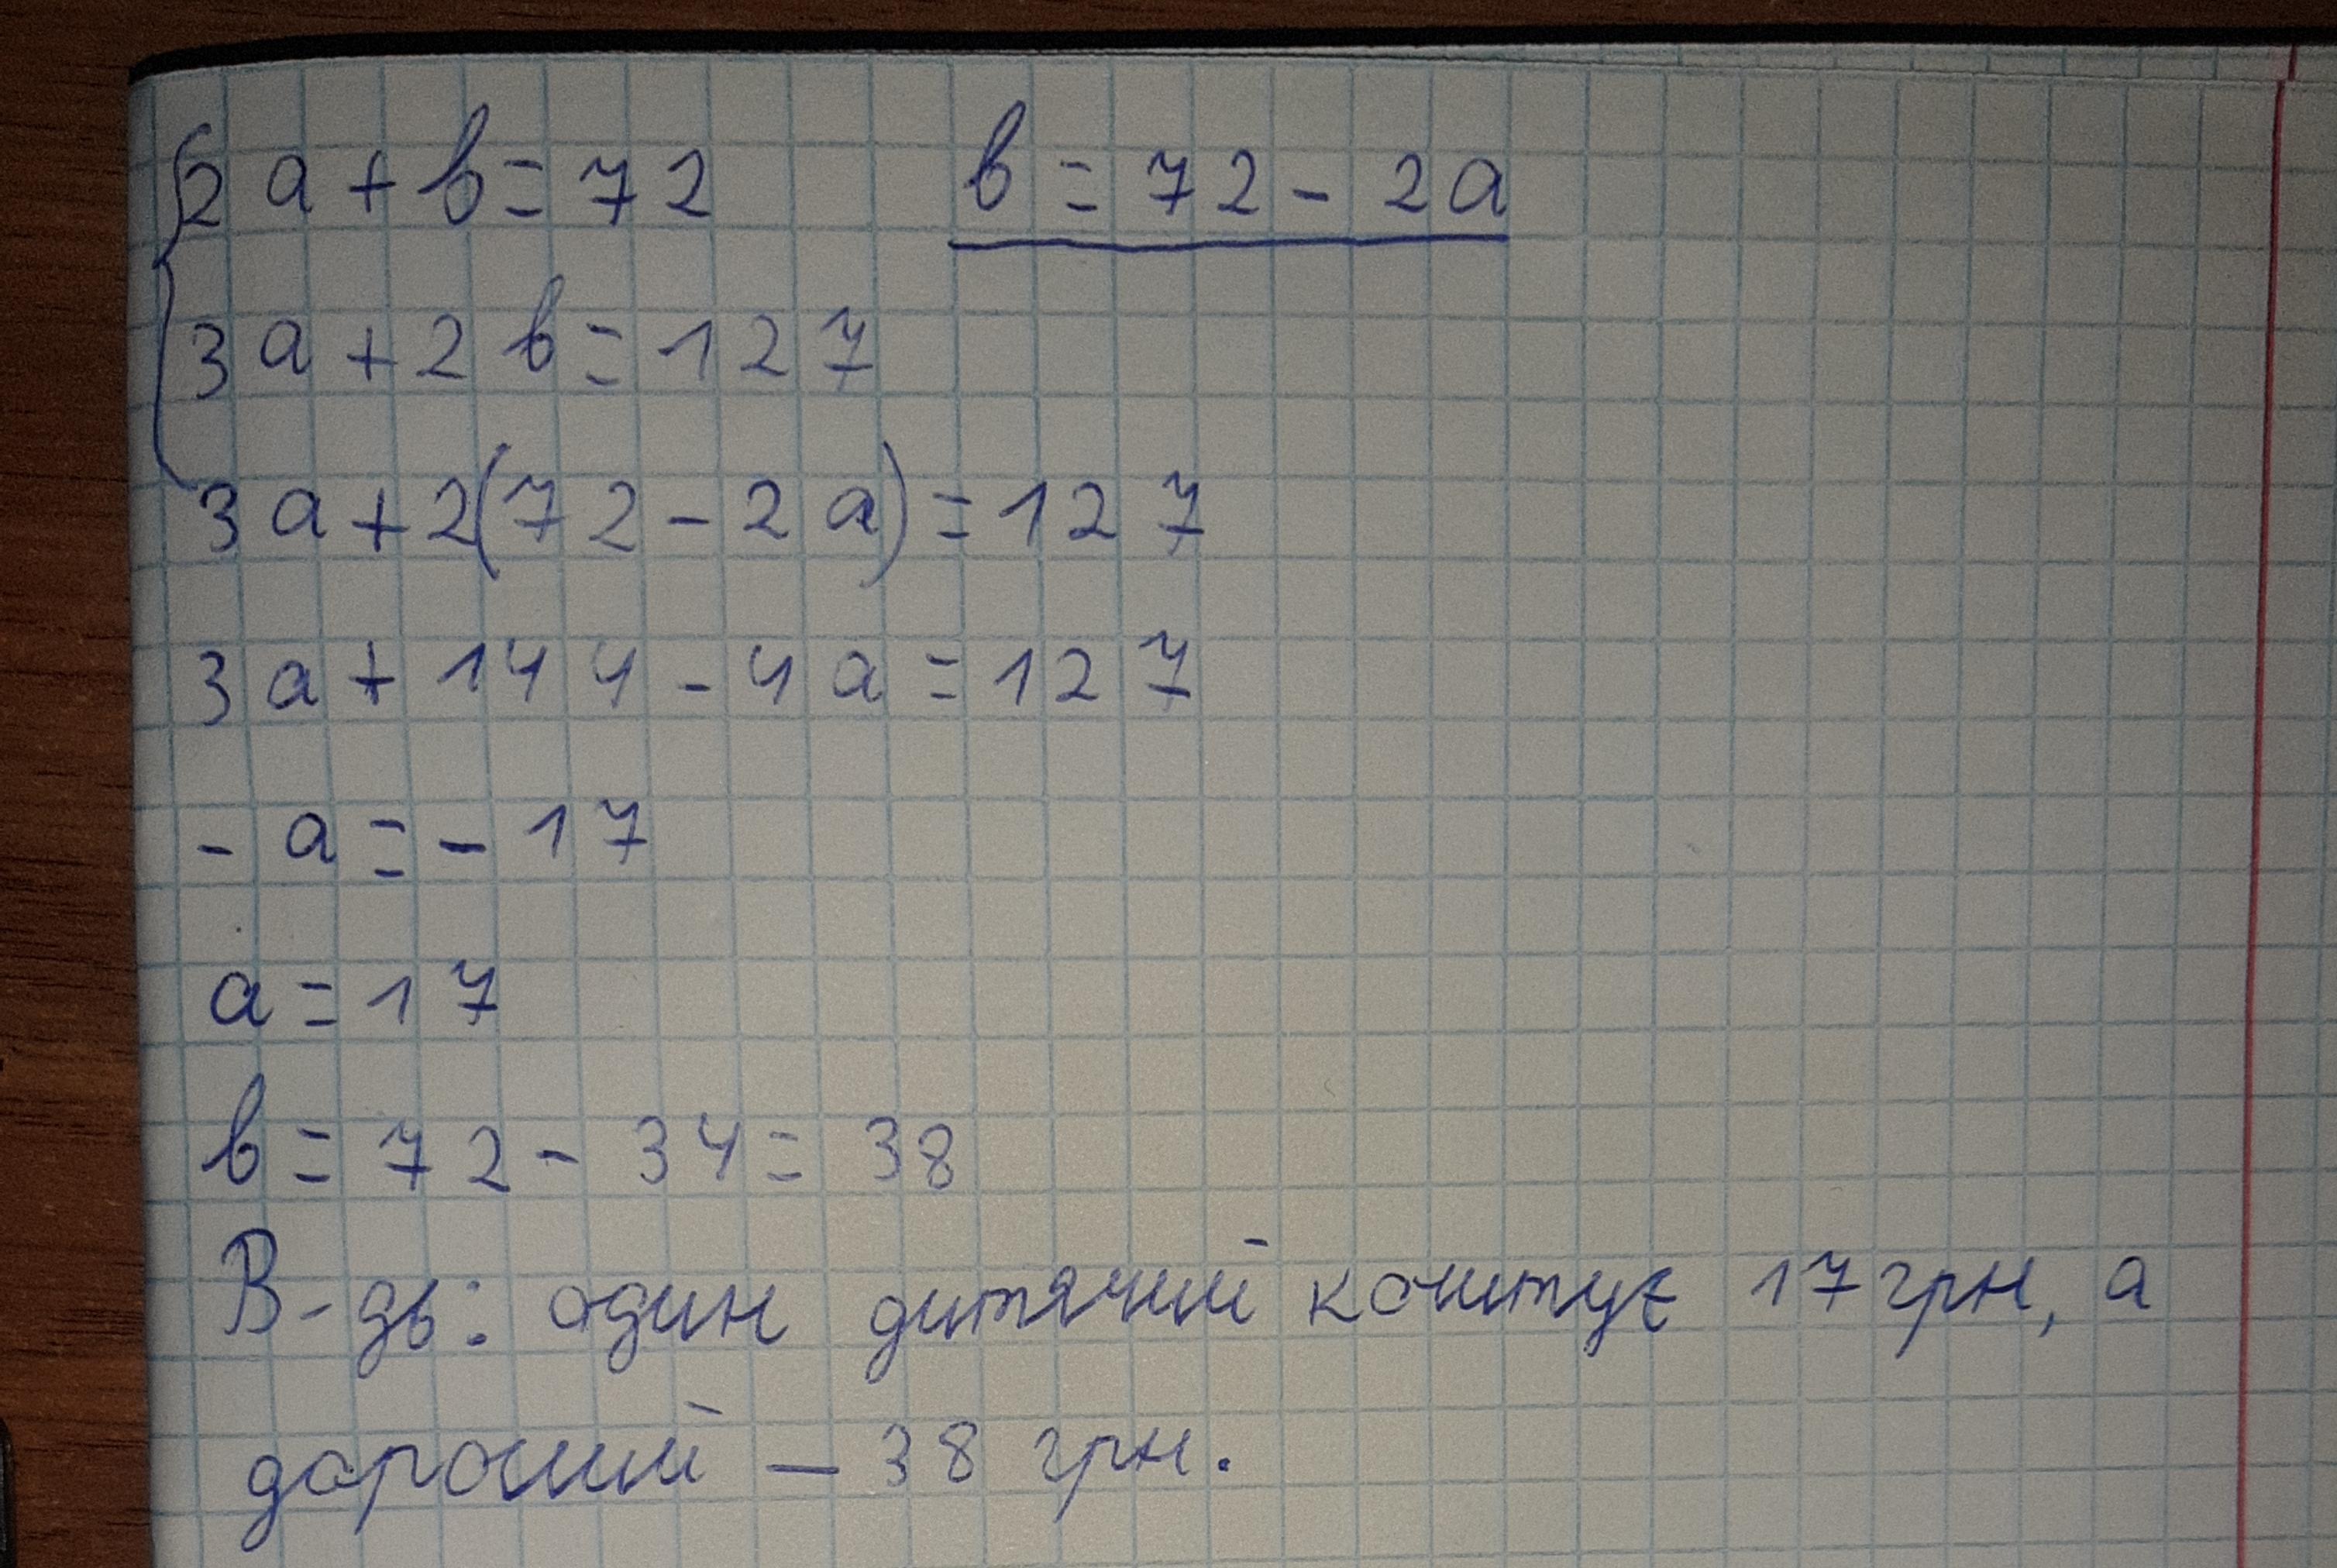 2a + b = 72    b = 72 - 2a
3a + 2b = 127
3a + 2(72 - 2a) = 127
3a + 144 - 4a = 127
- a = - 17
a = 17
b = 72 - 34 = 38
В-дь: один дитячий коштує 17 грн, а
дорослий — 38 грн.